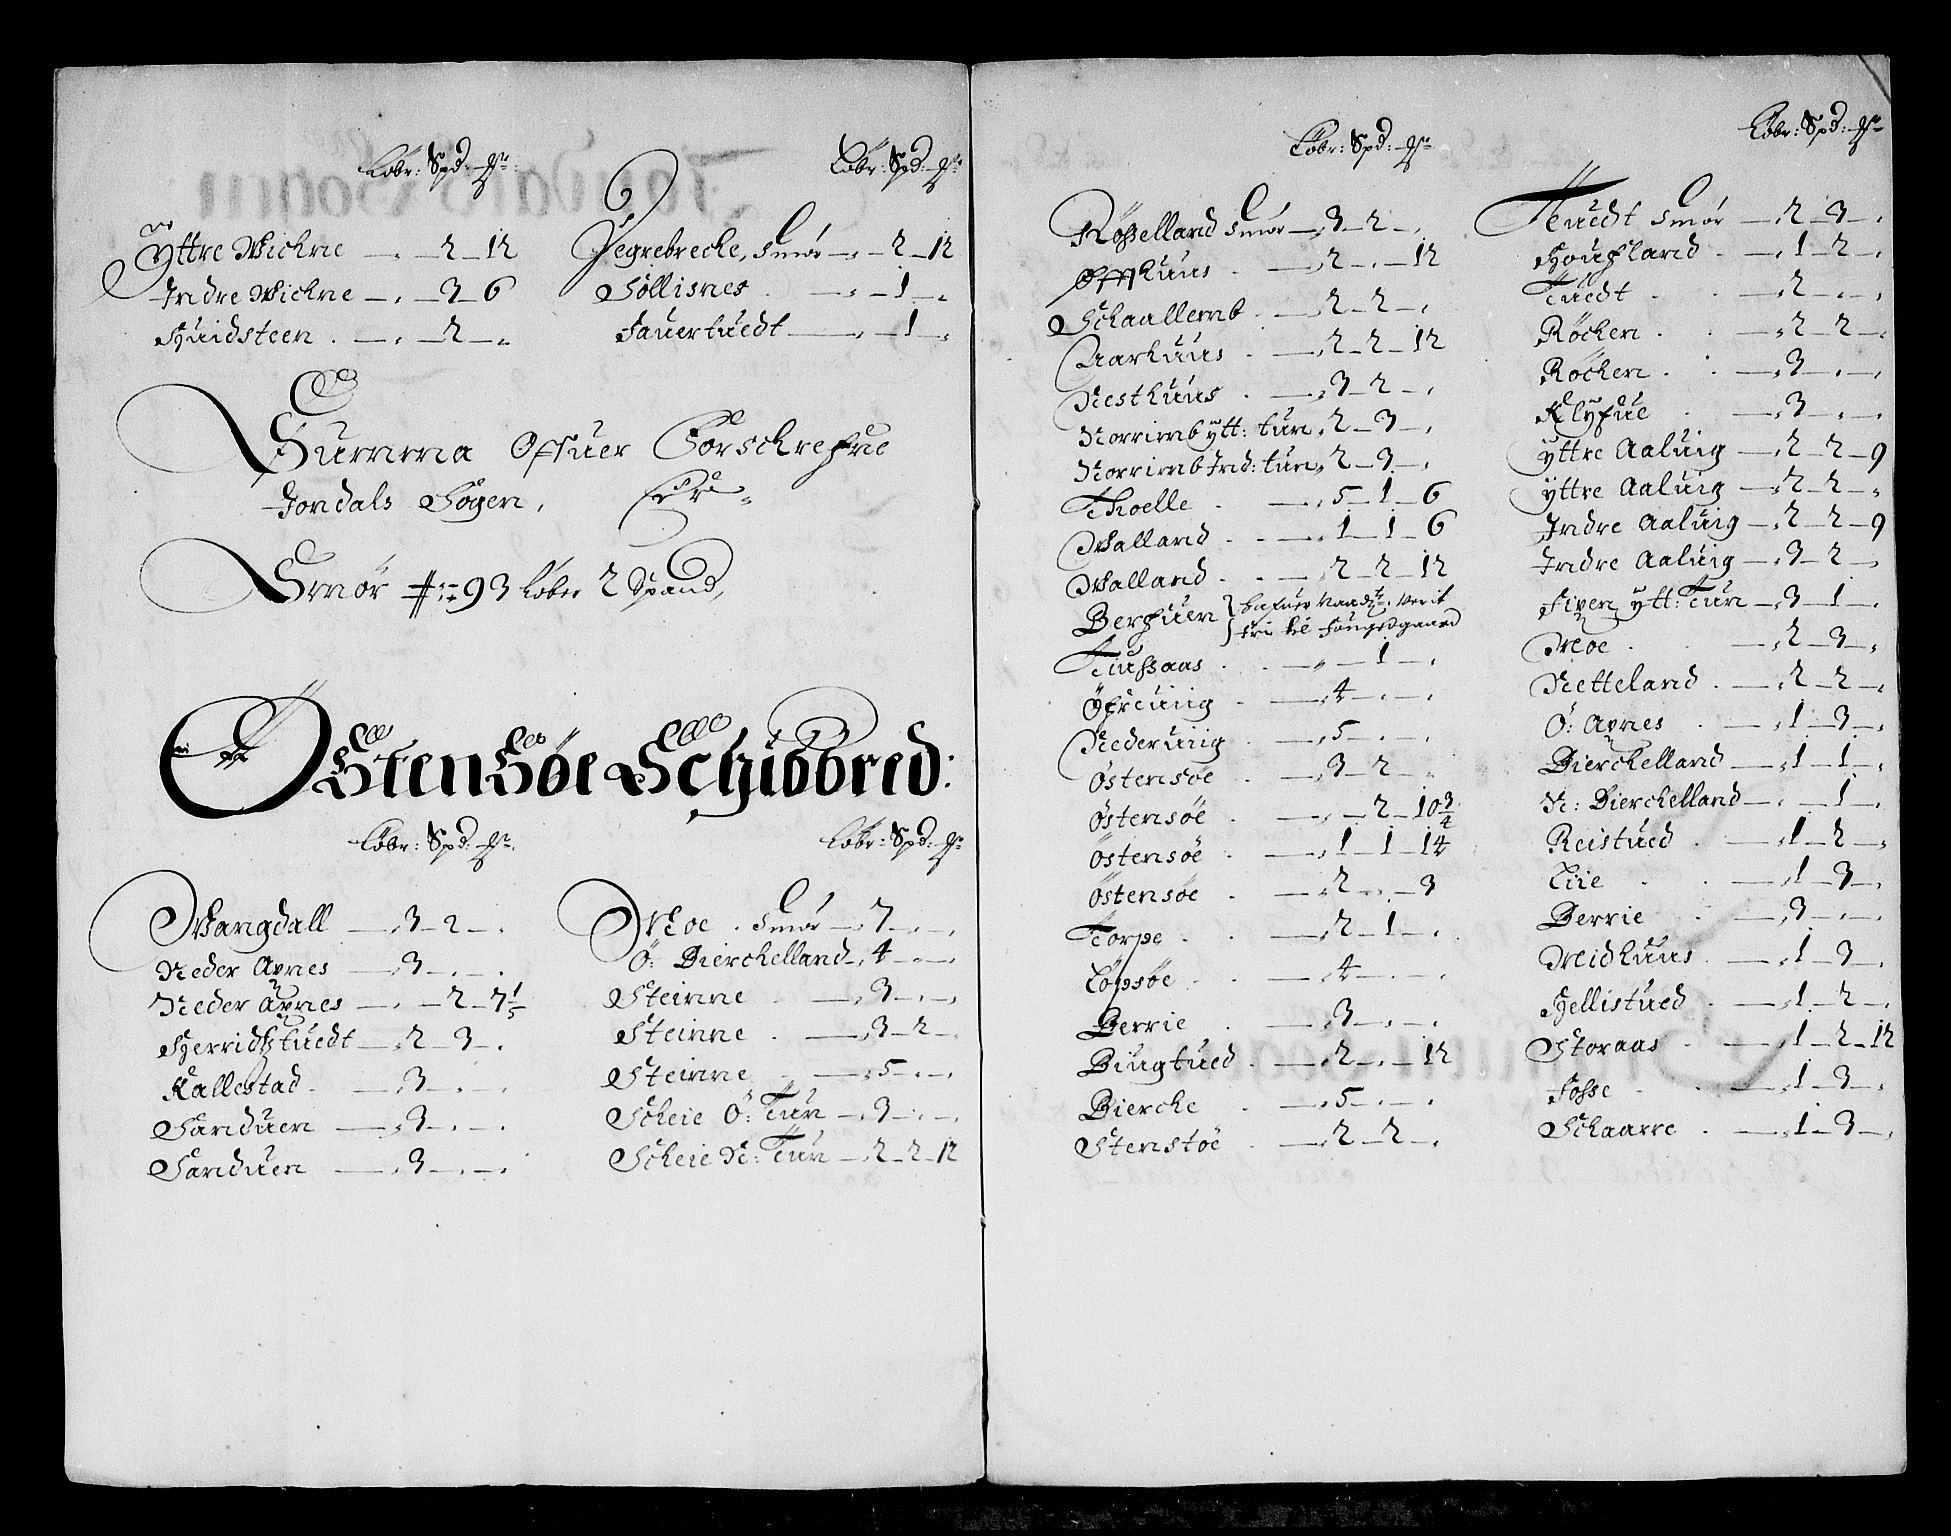 Løbr: Spd: ℔r
Yttre Wichne — . — 2 — 12
Indre Wichne — . — 3 — 6
Huidsteen . — . — 2 — „
Løbr: Spd: ℔r
Segrebrecke, Smør — „ — 2 — 12
Söllisnes . — „ — 1 — „
Sauertuedt — „ — 1 — „
Summa Ofuer Forschrefne
Jondals Sogen, Er
Smør # 93 Løber 2 Spand,
Østensøe Schibbred:
Løbr: Spd: ℔r
Wangdall — „ 3 — 2 — .
Neder Axnes — „ 3 — . — .
Neder Axnes — . — 2 — 7 1/5
Herridstuedt — „ 2 — 3 — .
Kallestad . — „ 3 — . — .
Sanduen — „ 3 — . — .
Sanduen — „ 3 — . — .
Løbr: Spd: ℔r
Moe . Smør — „ 7 — . — „
Ö: Bierchelland — „ 4 — . — „
Steinne — „ 3 — . — „
Steinne . — „ 3 — 2 — .
Steinne — „ 5 — . — „
Scheie Ö: Tun — „ 3 — . — „
Scheie N: Tun — „ 2 — 2 — 12
Løbr: Spd: ℔r
Røsselland Smør — „ 3 — 2 — .
Offthuus . — „ 2 — . — 12
Schaallemb . — „ 2 — 2 — .
Aarhuus . — „ 2 — 2 — 12
Nesthuus . — „ 3 — 2 — .
Norrimb ytt: tun „ 2 — 3 — .
Norrimb Ind: tun „ 2 — 3 — .
Thoelle . — „ 5 — 1 — 6
Walland . — „ 1 — 1 — 6
Walland . — „ 2 — 2 — 12
Berfuen
Tiussaas . — „ — 1 — .
Øfreuiig . — „ 4 — . — .
Nederuiig — „ 5 — . — .
Østensøe . — „ 3 — 2 — .
Østensøe . — „ — 2 — 10 3/4
Östensøe . — „ 1 — 1 — 14
Östensøe . — „ 2 — . — 3
Torpe . — „ 2 — 1 — .
Løpsøe . — „ 4 — . — .
Berrie . — „ 3 — . — .
Biugtued — „ 2 — . — 12
Bierche . — „ 5 — . — .
Stenstøe . — „ 2 — 2 — .
Løbr: Spd: ℔r
Tuedt Smør — „ 2 — 3 — .
Hougland . — „ 1 — 2 — .
Tuedt . — „ 2 — . — .
Röchen . — „ 2 — 2 — .
Röchen . — „ 3 — . — .
Klyfue . — „ 3 — . — .
Yttre Aaluig — „ 2 — 2 — 9
Yttre Aaluig — „ 2 — 2 — „
Indre Aaluig — „ 2 — 2 — 9
Indre Aaluig — „ 3 — 2 — „
Fixen ytt: Tun — „ 3 — 1 — .
Moe . — „ 2 — 3 — .
Netteland . — „ 2 — 2 — .
Ö: Axnes . — „ 1 — 3 — .
Bierchelland — „ 1 — 1 — .
N: Bierchelland — . — 1 — .
Reistued . — „ 1 — 2 — .
Liie . — „ 1 — 3 — .
Berrie . — „ 3 — . — .
Midhuus . — „ 1 — 3 — .
Hellistued . — „ 1 — 2 — .
Storaas . — „ 1 — 2 — 12
Fosse . — „ 1 — 3 — .
Schaarre . — „ 1 — 3 — .